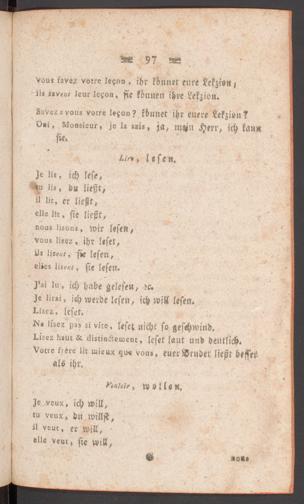 97
vous savez votre leçon, ihr könnet eure Lekzion,
ils savent leur leçon, sie können ihre Lekzion.
Savez-vous votre leçon? könnet ihr euere Lekzion?
Oui, Monsieur, je la sais, ja, mein Herr, ich kann
sie.
Lire, lesen.
Je lis, ich lese,
tu lis, du liest,
il lit, er ließt,
elle lit, sie ließt,
nous lisons, wir lesen,
vous lisez, ihr leset,
ils lisent, sie lesen,
elles lisent, sie lesen.
J'ai lu, ich habe gelesen, ꝛc.
Je lirai, ich werde lesen, ich will lesen.
Lisez, leset.
Ne lisez pas si vite, leset nicht so geschwind.
Lisez haut & distinctement, leset laut und deutlich.
Votre frère lit mieux que vous, euer Bruder ließt besser
als ihr.
Vouloir, wollen.
Je veux, ich will,
tu veux, du willst,
il veut, er will,
elle veut, sie will,
nous